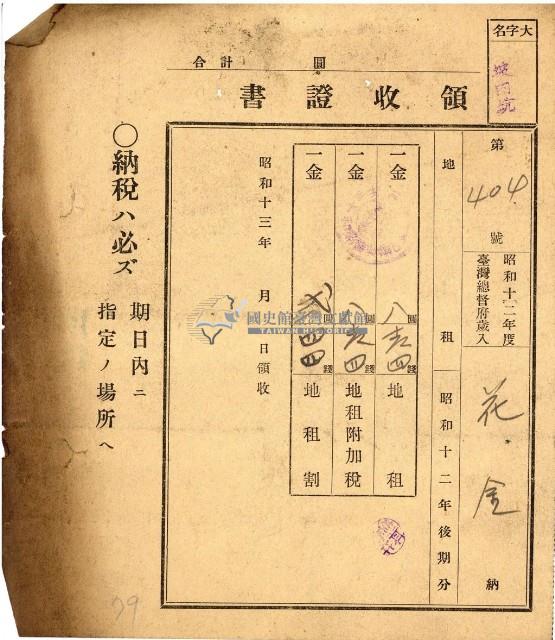 大字名
坡内坑
合計 圓
領收證書
第404號
昭和十二年度
臺灣總督府歲入
花 金 納
地租 昭和十二年後期分
一金 圓 錢 地租
一金 圓 錢 地租附加稅
一金 圓 錢 地租割
昭和十三年 月 日領收
〇納稅ハ必ズ
期日內ニ
指定ノ場所ヘ
國史館臺灣文獻館
TAIWAN HISTORICA
79